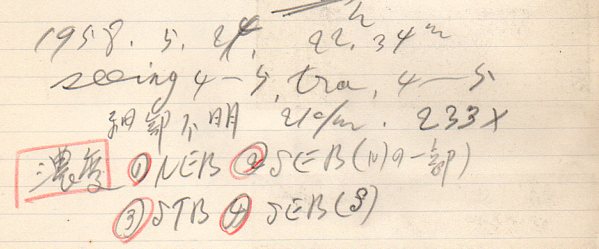 1958. 5. 24, 22h 34m
seeing 4-5, tra, 4-5
細部不明 21c/m. 233X
濃度 ①NEB ②SEB(N)の一部)
③STB ④SEB(S)